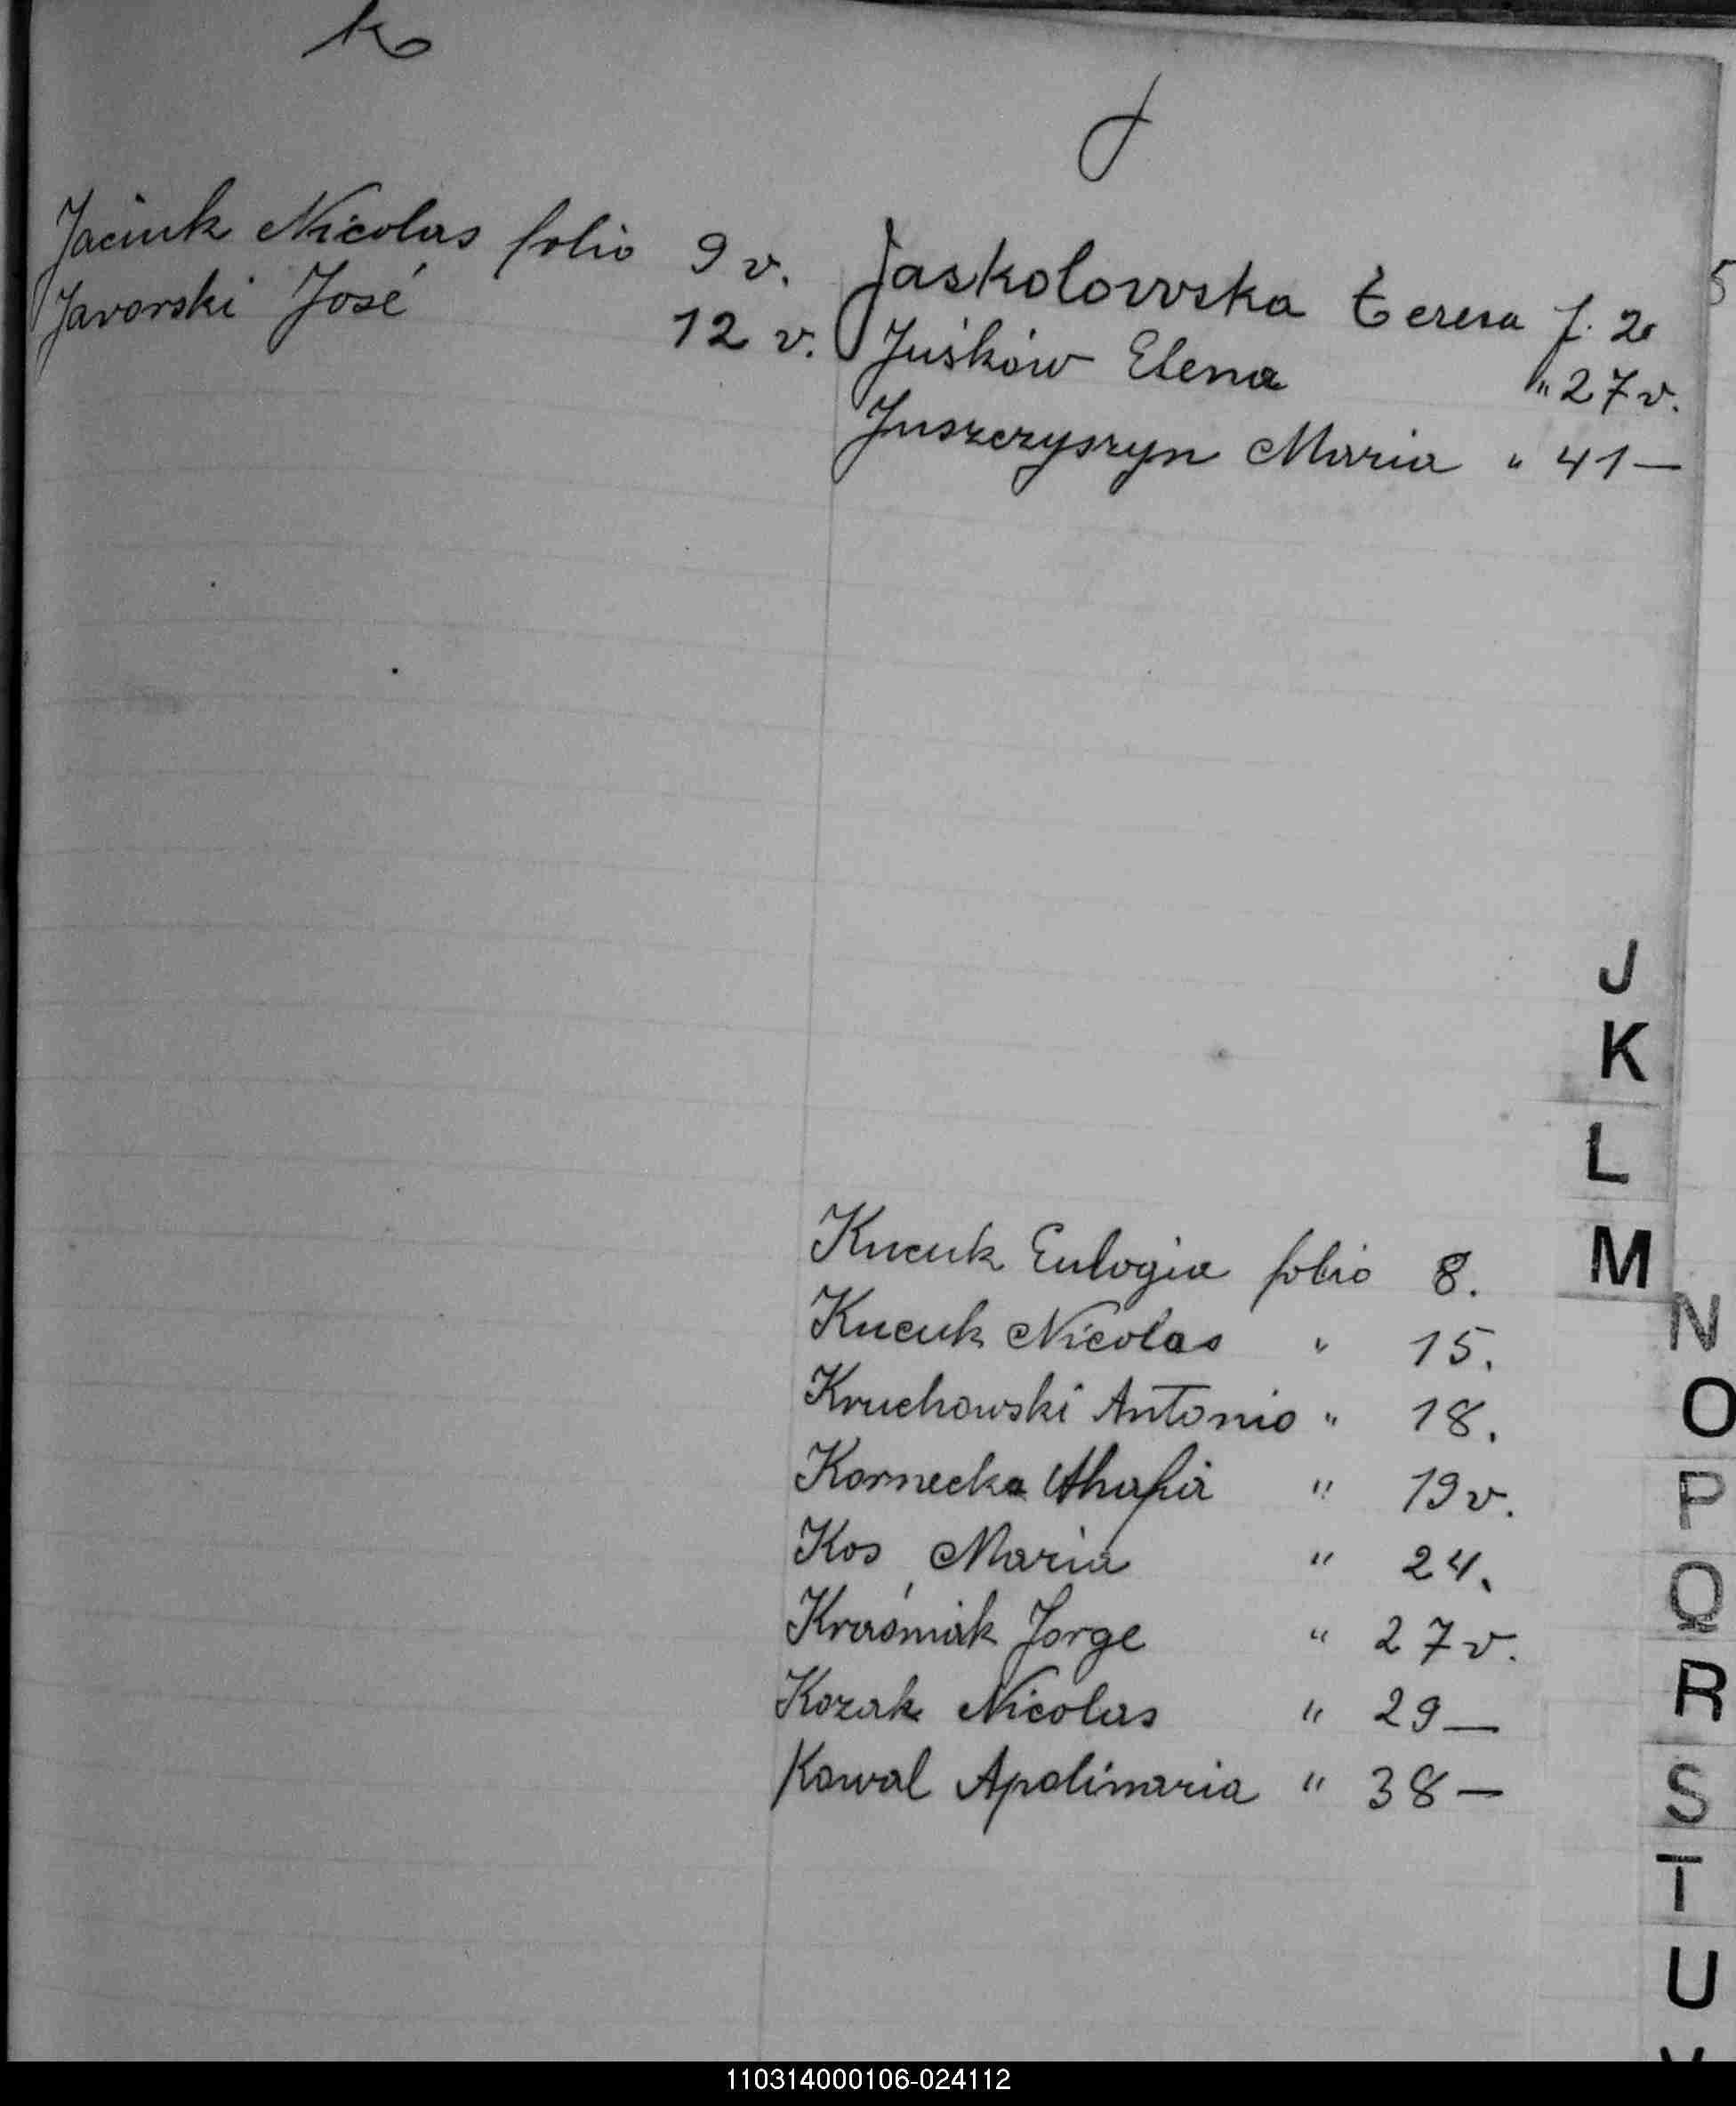 K
J
Jaciuk Nicolas folio 9 v.
Javorski José 12 v.
Jaskolowska Teresa f. 2
Juśków Elena " 27 v.
Juszczyszyn Maria " 41 —
J
K
L
M
Kucuk Eulogia folio 8.
Kucuk Nicolas " 15.
Kruchowski Antonio " 18.
Kornecka Ahafia " 19 v.
Kos Maria " 24.
Kraśniak Jorge " 27 v.
Kozak Nicolas " 29 —
Kowal Apolinaria " 38 —
N
O
P
Q
R
S
T
U
110314000106-024112